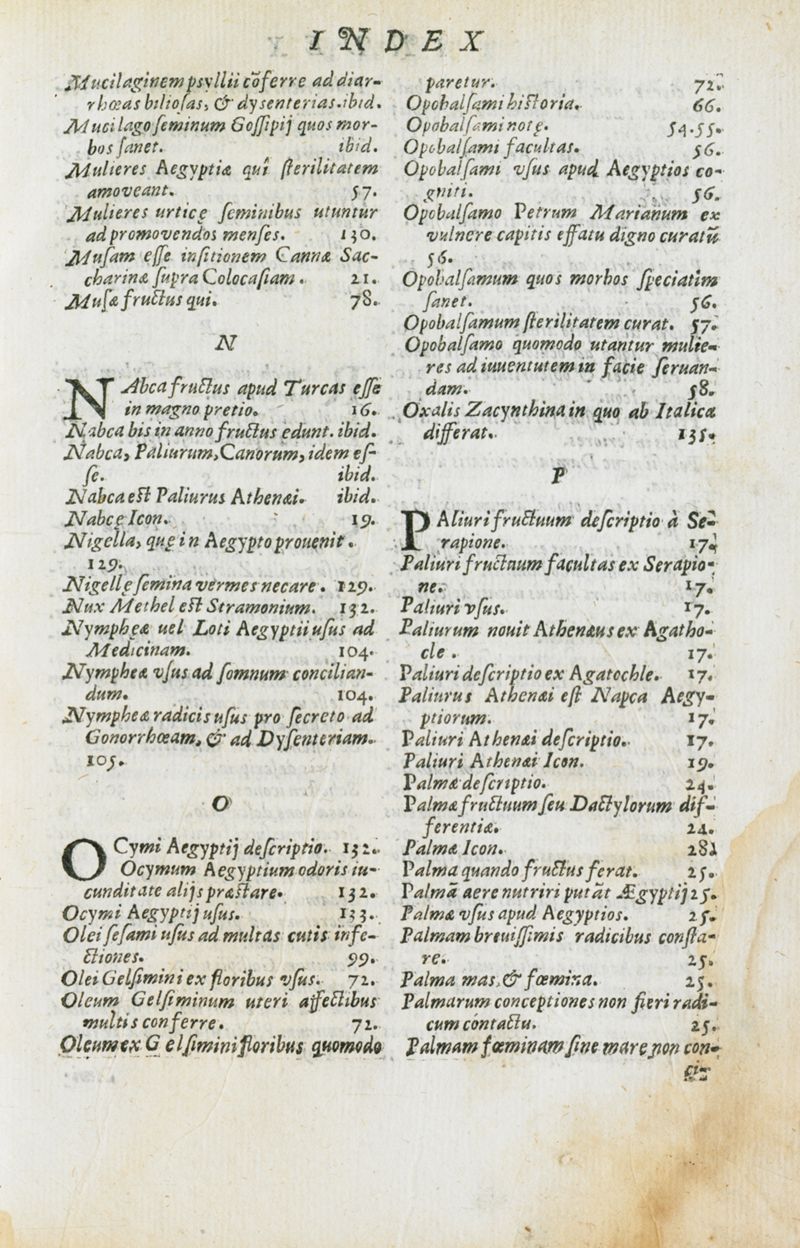 INDEX
Mucilaginem psyllii cõferre ad diar-
rhœas biliosas, & dysenterias. ibid.
Mucilago seminum Gossipij quos mor-
bos sanet. ibid.
Mulieres Aegyptiæ qui sterilitatem
amoveant. 57.
Mulieres urticę seminibus utuntur
ad promovendos menses. 130.
Musam esse insitionem Cannæ Sac-
charinæ supra Colocasiam. 21.
Musæ fructus qui. 78.
N
NAbca fructus apud Turcas esse
in magno pretio. 16.
Nabca bis in anno fructus edunt. ibid.
Nabca, Paliurum, Canorum, idem es-
se. ibid.
Nabca est Paliurus Athenæi. ibid.
Nabcę Icon. 19.
Nigella, quę in Aegypto prouenit.
129.
Nigellę semina vermes necare. 129.
Nux Methel est Stramonium. 132.
Nymphęæ uel Loti Aegyptii usus ad
Medicinam. 104.
Nympheæ vsus ad somnum concilian-
dum. 104.
Nympheæ radicis usus pro secreto ad
Gonorrhœam, & ad Dysenteriam.
105.
O
OCymi Aegyptij descriptio. 132.
Ocymum Aegyptium odoris iu-
cunditate alijs præstare. 132.
Ocymi Aegyptij usus. 133.
Olei sesami usus ad multas cutis infe-
ctiones. 99.
Olei Gelsimini ex floribus vsus. 72.
Oleum Gelsiminum uteri affectibus
multis conferre. 72.
Oleum ex Gelsimini floribus quomodo
paretur. 72.
Opobalsami historia. 66.
Opobalsami notę. 54.55.
Opobalsami facultas. 56.
Opobalsami vsus apud Aegyptios co-
gniti. 56.
Opobalsamo Petrum Marianum ex
vulnere capitis effatu digno curatũ
56.
Opobalsamum quos morbos speciatim
sanet. 56.
Opobalsamum sterilitatem curat. 57.
Opobalsamo quomodo utantur mulie-
res ad iuuentutem in facie seruan-
dam. 58.
Oxalis Zacynthina in quo ab Italica
differat. 135.
P
PAliuri fructuum descriptio à Se-
rapione. 17.
Paliuri fructnum facultas ex Serapio-
ne. 17.
Paliuri vsus. 17.
Paliurum nouit Athenæus ex Agatho-
cle. 17.
Paliuri descriptio ex Agatochle. 17.
Paliurus Athenæi est Napca Aegy-
ptiorum. 17.
Paliuri Athenæi descriptio. 17.
Paliuri Athenæi Icon. 19.
Palmæ descriptio. 24.
Palmæ fructuum seu Dactylorum dif-
ferentiæ. 24.
Palmæ Icon. 281
Palma quando fructus ferat. 25.
Palmã aere nutriri putãt Ægyptij 25.
Palmæ vsus apud Aegyptios. 25.
Palmam breuissimis radicibus consta-
re. 25.
Palma mas, & fœmina. 25.
Palmarum conceptiones non fieri radi-
cum contactu. 25.
Palmam fœminam sine mare non con-
ci-